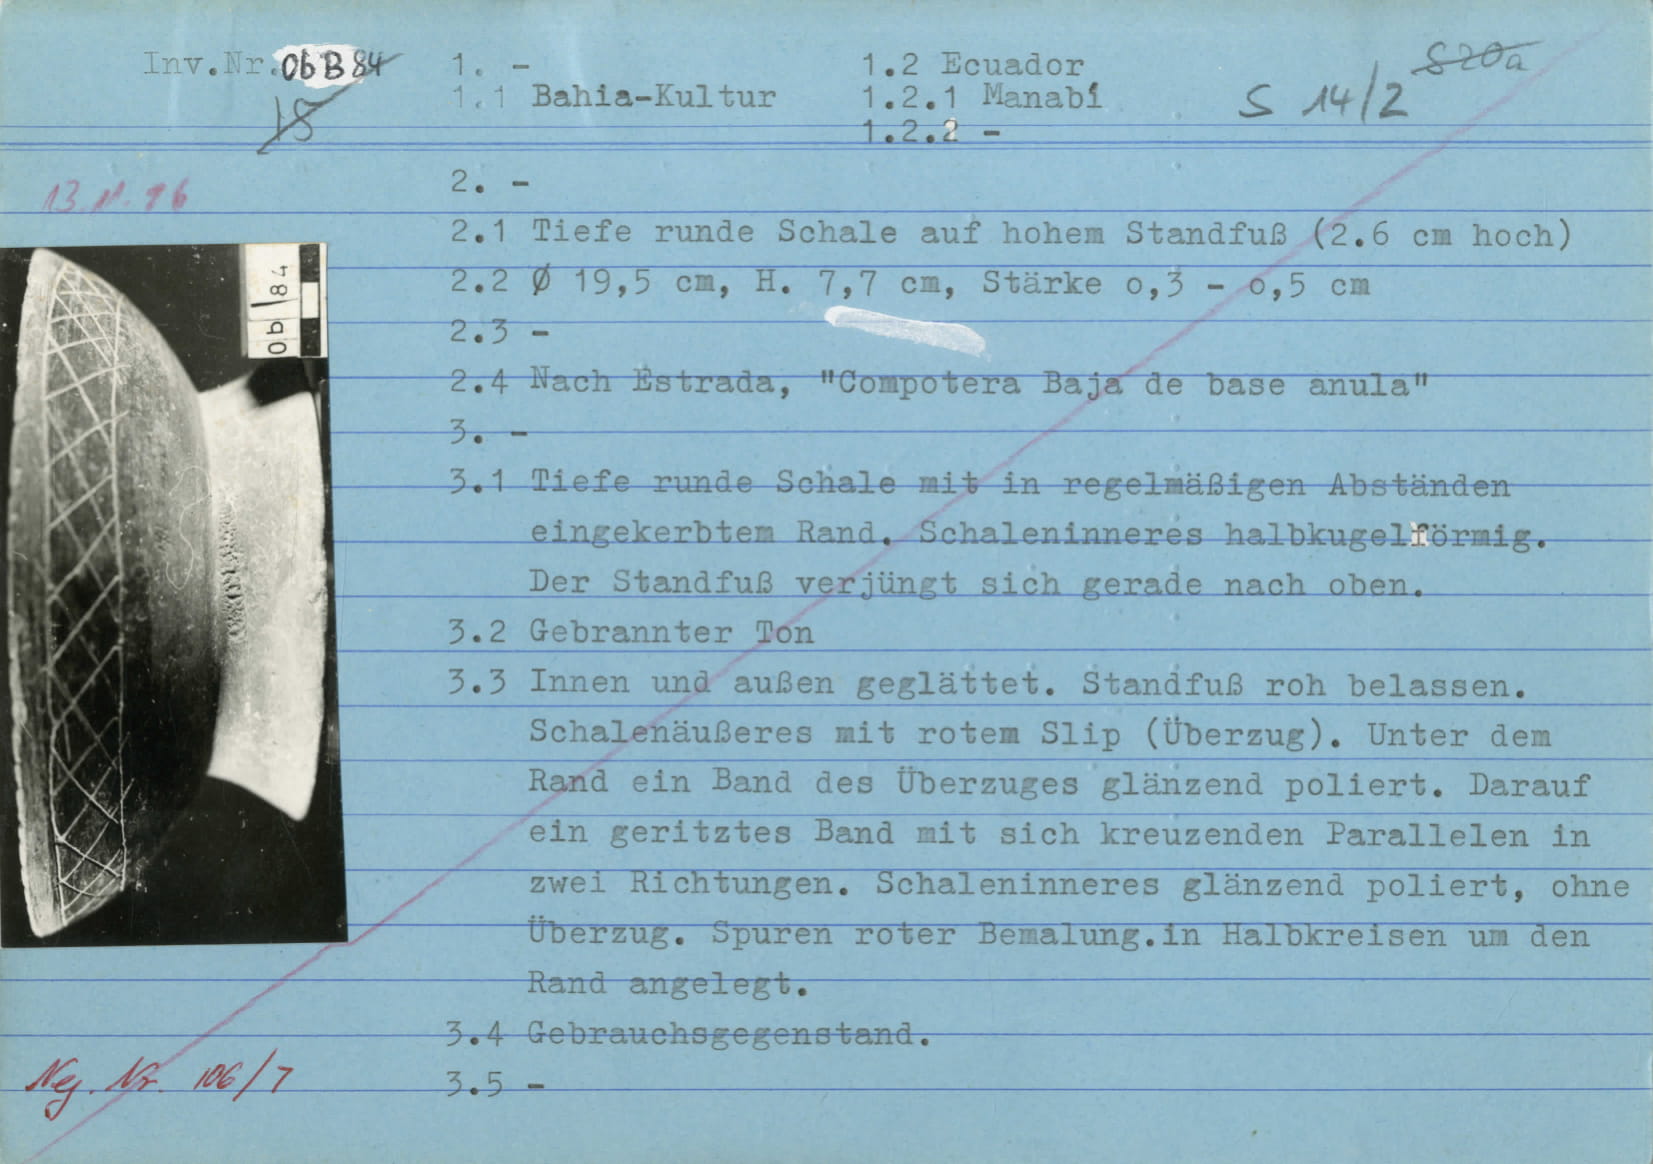 Inv.Nr. Ob B 84
18
1. -
1.1 Bahia-Kultur
1.2 Ecuador
1.2.1 Manabí
1.2.2 -
S 14/2
S20a
2. -
2.1 Tiefe runde Schale auf hohem Standfuß (2.6 cm hoch)
2.2 Ø 19,5 cm, H. 7,7 cm, Stärke o,3 - o,5 cm
2.3 -
2.4 Nach Estrada, "Compotera Baja de base anula"
3. -
3.1 Tiefe runde Schale mit in regelmäßigen Abständen
eingekerbtem Rand. Schaleninneres halbkugelförmig.
Der Standfuß verjüngt sich gerade nach oben.
3.2 Gebrannter Ton
3.3 Innen und außen geglättet. Standfuß roh belassen.
Schalenäußeres mit rotem Slip (Überzug). Unter dem
Rand ein Band des Überzuges glänzend poliert. Darauf
ein geritztes Band mit sich kreuzenden Parallelen in
zwei Richtungen. Schaleninneres glänzend poliert, ohne
Überzug. Spuren roter Bemalung.in Halbkreisen um den
Rand angelegt.
3.4 Gebrauchsgegenstand.
3.5 -
Ob 84
Neg. Nr. 106/7